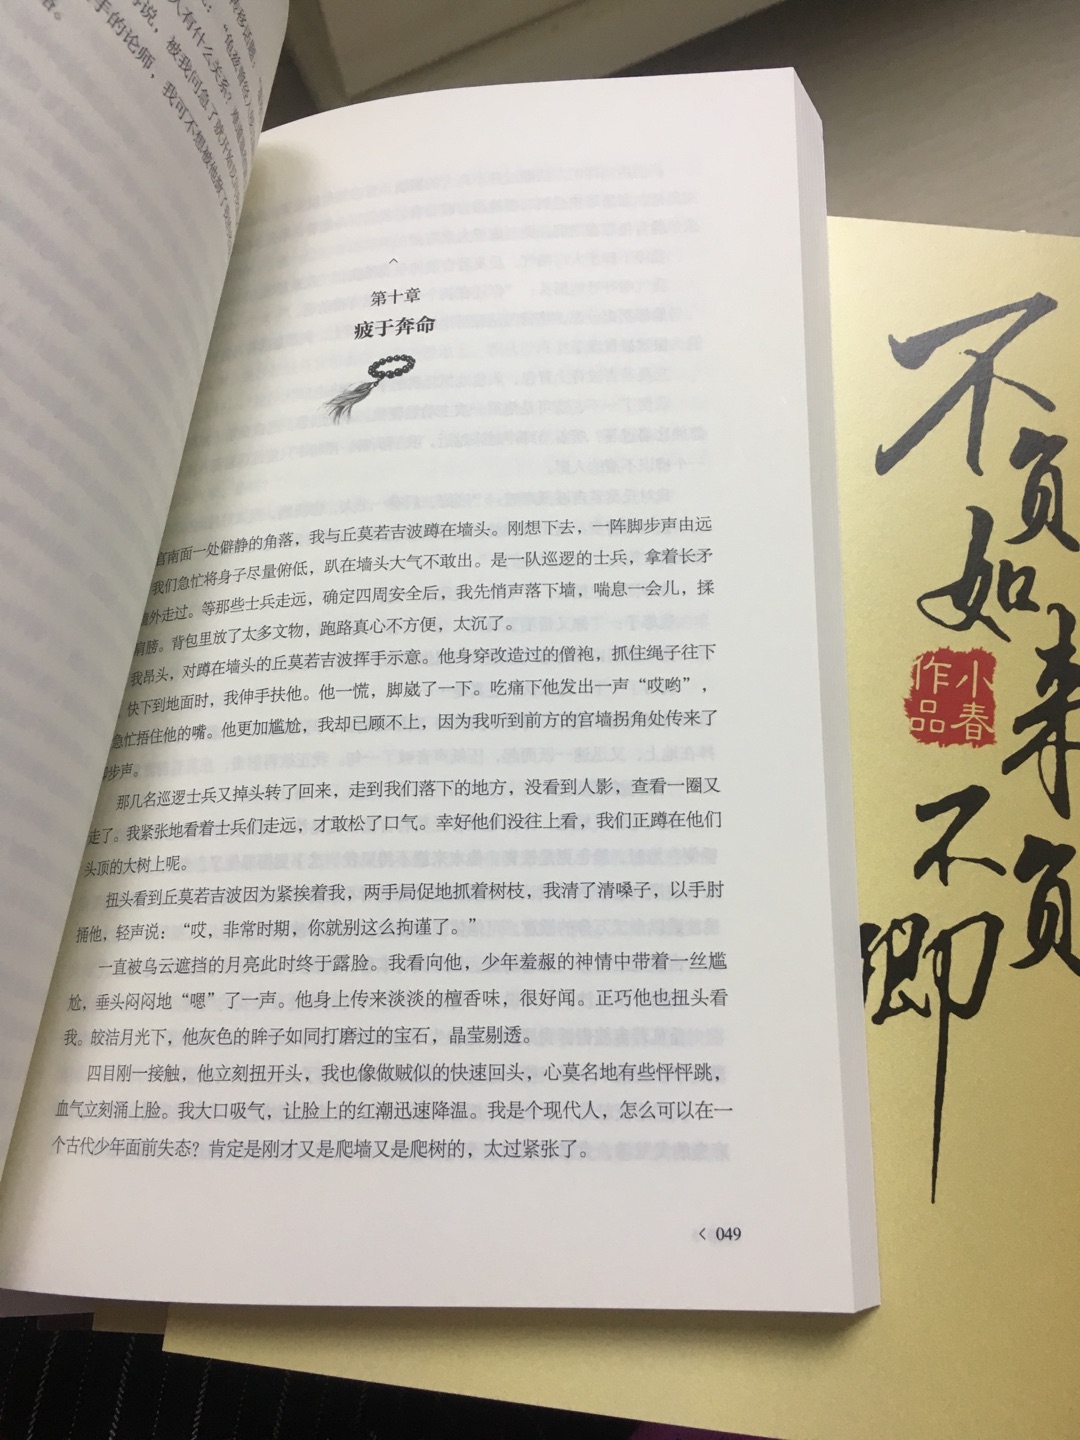 第十章
疲于奔命
宫南面一处僻静的角落，我与丘莫若吉波蹲在墙头。刚想下去，一阵脚步声由远
我们急忙将身子尽量俯低，趴在墙头大气不敢出。是一队巡逻的士兵，拿着长矛
墙外走过。等那些士兵走远，确定四周安全后，我先悄声落下墙，喘息一会儿，揉
肩膀。背包里放了太多文物，跑路真心不方便，太沉了。
我昂头，对蹲在墙头的丘莫若吉波挥手示意。他身穿改造过的僧袍，抓住绳子往下
快下到地面时，我伸手扶他。他一慌，脚崴了一下。吃痛下他发出一声“哎哟”，
急忙捂住他的嘴。他更加尴尬，我却已顾不上，因为我听到前方的宫墙拐角处传来了
脚步声。
那几名巡逻士兵又掉头转了回来，走到我们落下的地方，没看到人影，查看一圈又
走了。我紧张地看着士兵们走远，才敢松了口气。幸好他们没往上看，我们正蹲在他们
头顶的大树上呢。
扭头看到丘莫若吉波因为紧挨着我，两手局促地抓着树枝，我清了清嗓子，以手肘
捅他，轻声说：“哎，非常时期，你就别这么拘谨了。”
一直被乌云遮挡的月亮此时终于露脸。我看向他，少年羞赧的神情中带着一丝尴
尬，垂头闷闷地“嗯”了一声。他身上传来淡淡的檀香味，很好闻。正巧他也扭头看
我。皎洁月光下，他灰色的眸子如同打磨过的宝石，晶莹剔透。
四目刚一接触，他立刻扭开头，我也像做贼似的快速回头，心莫名地有些怦怦跳，
血气立刻涌上脸。我大口吸气，让脸上的红潮迅速降温。我是个现代人，怎么可以在一
个古代少年面前失态？肯定是刚才又是爬墙又是爬树的，太过紧张了。
049
不负
如来
不负
卿
小春
作品
人有什么关系？
说，被我问急了就开始
手的论师，我可不想被他